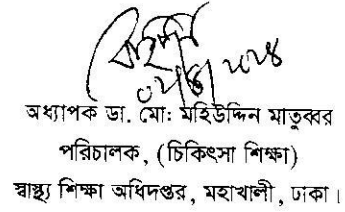 অধ্যাপক ডা. মো: মহিউদ্দিন মাতুব্বর
পরিচালক, (চিকিৎসা শিক্ষা)
স্বাস্থ্য শিক্ষা অধিদপ্তর, মহাখালী, ঢাকা।